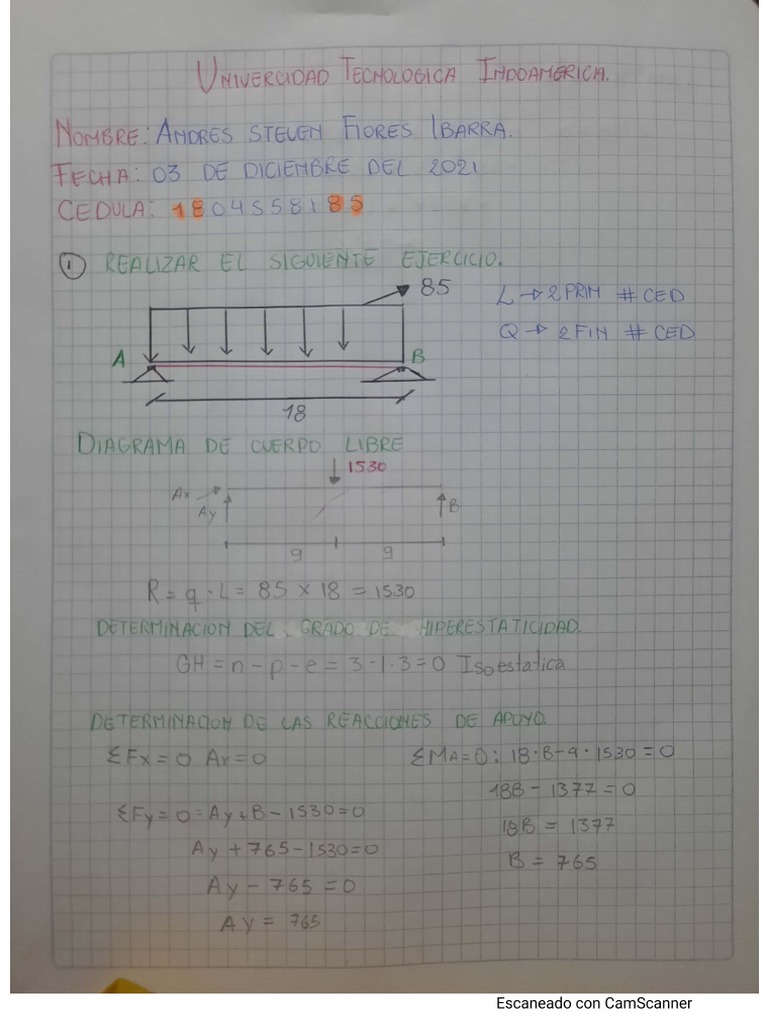 UNIVERCIDAD TECNOLOGICA INDOAMERICA.
NOMBRE: ANDRES STEVEN FLORES IBARRA.
FECHA: 03 DE DICIEMBRE DEL 2021
CEDULA: 1804558185
① REALIZAR EL SIGUIENTE EJERCICIO.
85
L → 2 PRIM # CED
Q → 2 FIN # CED
A B
18
DIAGRAMA DE CUERPO LIBRE
1530
Ax
Ay B
9 9
R = q · L = 85 × 18 = 1530
DETERMINACION DEL GRADO DE HIPERESTATICIDAD.
GH = n - p - e = 3 - 1 · 3 = 0 Isoestatica
DETERMINACION DE LAS REACCIONES DE APOYO
ΣFx = 0 Ax = 0
ΣMA = 0: 18·B - 9 · 1530 = 0
18B - 1377 = 0
ΣFy = 0 = Ay + B - 1530 = 0
18B = 1377
Ay + 765 - 1530 = 0
B = 765
Ay - 765 = 0
Ay = 765
Escaneado con CamScanner